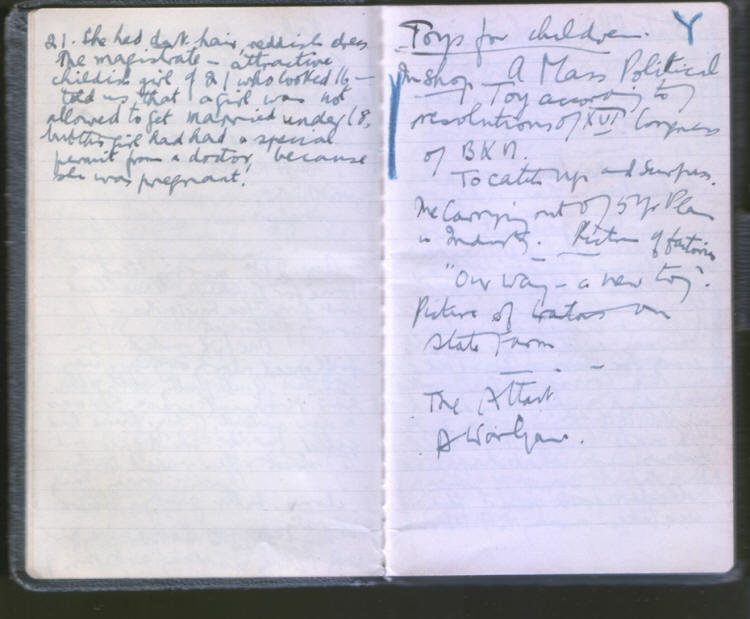 21. She had dark hair, reddish dress
The magistrate – attractive
childish girl of 21 who looked 16 –
told us that a girl was not
allowed to get married under 18,
but this girl had had a special
permit from a doctor, because
she was pregnant.
Y
Toys for children.
In shop – A Mass Political
Toy according to
resolutions of XVI Congress
of BKП.
To catch up and surpass.
The carrying out of 5 Yr Plan
in Industry. Picture of factories
"Our way – a new toy".
Picture of tractors on
State Farm
The Attack
A War Game.